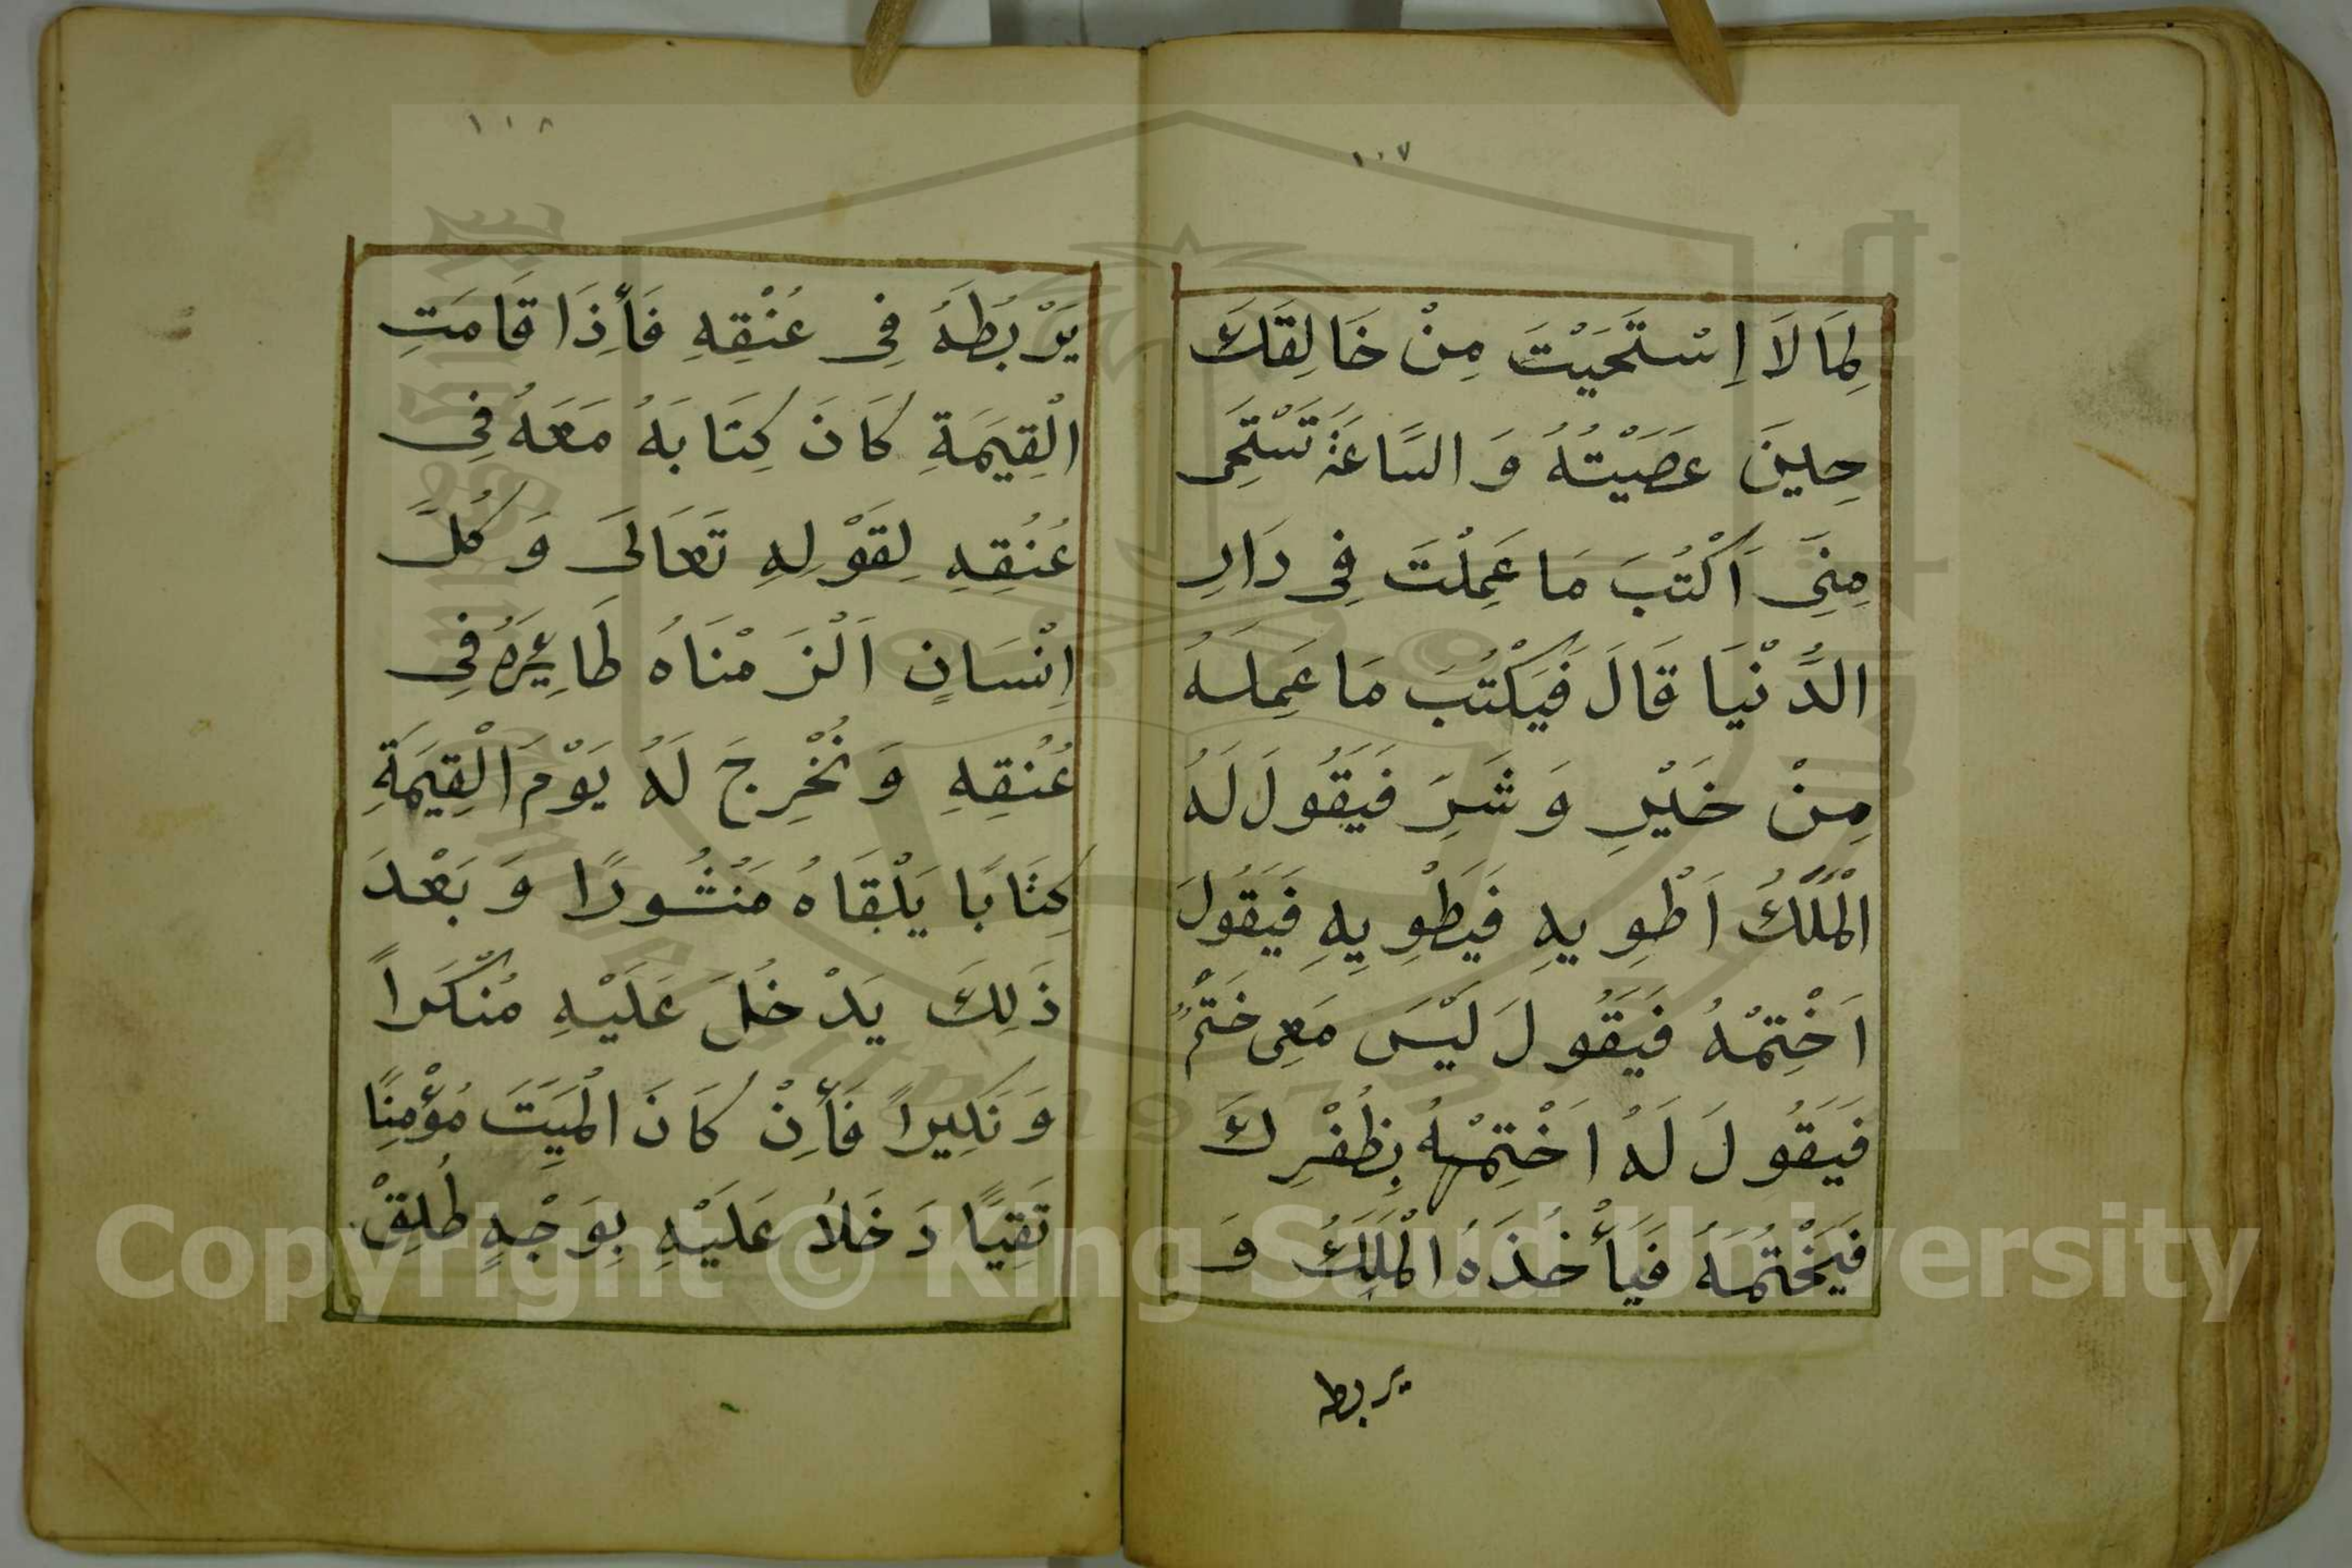 ١٠٧
لِمَا لَا اِسْتَحَيْتَ مِنْ خَالِقَكَ
حِينَ عَصَيْتُهُ وَ السَّاعَةَ تَسْتَحِى
مِنِّى اَكْتُبَ مَا عَمِلْتَ فِى دَارِ
الدُّنْيَا قَالَ فَيَكْتُبَ مَا عَمِلَهُ
مِنْ خَيْرِ وَ شَرِّ فَيَقُولَ لَهُ
الْمَلَكُ اَطْوِيهِ فَيَطْوِيِهِ فَيَقُولَ
اَخْتِمْهُ فَيَقُولَ لَيْسَ مَعِى خَتْمٌ
فَيَقُولَ لَهُ اَخْتِمْهُ بِظُفْرِكَ
فَيَخْتُمَهُ فَيَأْخُذَهُ الْمَلَكُ وَ
يربط
١٠٨
يَرْبُطَهُ فِى عُنْقِهِ فَأِذَا قَامَتِ
الْقِيَمَةِ كَانَ كِتَابَهُ مَعَهُ فِى
عُنُقِهِ لِقَوْلِهِ تَعَالَى وَ كُلَّ
اِنْسَانٍ اَلْزَمْنَاهُ طَائِرَهُ فِى
عُنُقِهِ وَ نُخْرِجَ لَهُ يَوْمَ الْقِيَمَةِ
كِتَابًا يَلْقَاهُ مَنْشُورًا وَ بَعْدَ
ذَلِكَ يَدْخُلَ عَلَيْهِ مُنْكَراً
وَ نَكِيراً فَأِنْ كَانَ الْمَيِّتَ مُؤْمِنًا
تَقِيًّا دَخَلاَ عَلَيْهِ بِوَجْهٍ طُلِقْ
Copyright © King Saud University